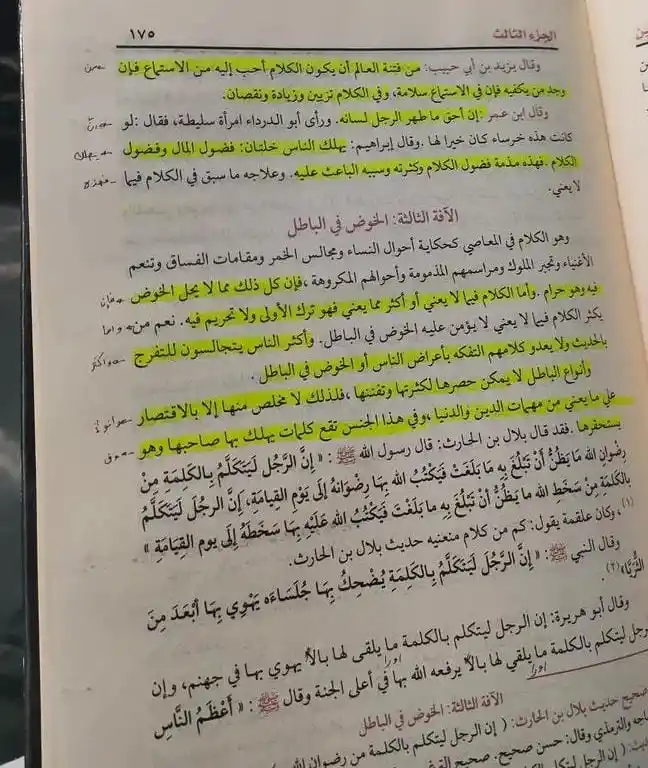 الجزء الثالث ١٧٥
وقال يزيد بن أبي حبيب: من فتنة العالم أن يكون الكلام أحب إليه من الاستماع فإن
وجد من يكفيه فإن في الاستماع سلامة، وفي الكلام تزيين وزيادة ونقصان.
وقال ابن عمر :إن أحق ما طهر الرجل لسانه. ورأى أبو الدرداء امرأة سليطة، فقال :لو
كانت هذه خرساء كان خيرا لها .وقال إبراهيم: يهلك الناس خلتان: فضول المال وفضول
الكلام .فهذه مذمة فضول الكلام وكثرته وسببه الباعث عليه. وعلاجه ما سبق في الكلام فيما
لا يعني.
الآفة الثالثة: الخوض في الباطل
وهو الكلام في المعاصي كحكاية أحوال النساء ومجالس الخمر ومقامات الفساق وتنعم
الأغنياء وتجبر الملوك ومراسمهم المذمومة وأحوالهم المكروهة ،فإن كل ذلك مما لا يحل الخوض
فيه وهو حرام .وأما الكلام فيما لا يعني أو أكثر مما يعني فهو ترك الأولى ولا تحريم فيه. نعم من
يكثر الكلام فيما لا يعني لا يؤمن عليه الخوض في الباطل. وأكثر الناس يتجالسون للتفرج
بالحديث ولا يعدو كلامهم التفكه بأعراض الناس أو الخوض في الباطل .
وأنواع الباطل لا يمكن حصرها لكثرتها وتفننها ،فلذلك لا مخلص منها إلا بالاقتصار
على ما يعني من مهمات الدين والدنيا ،وفي هذا الجنس تقع كلمات يهلك بها صاحبها وهو
يستحقرها .فقد قال بلال بن الحارث: قال رسول الله ﷺ : « إِنَّ الرَّجُلَ لَيَتَكَلَّمُ بِالكَلِمَةِ مِنْ
رِضْوَانِ الله مَا يَظُنُّ أَنْ تَبْلُغَ بِهِ مَا بَلَغَتْ فَيَكْتُبُ الله بِهَا رِضْوَانَهُ إلَى يَوْمِ القِيَامَةِ، إِنَّ الرجُلَ لَيَتَكَلَّمُ
بِالكَلِمَةِ مِنْ سَخَطِ الله ما يَظُنُّ أَنْ تَبْلُغَ بِهِ ما بَلَغَتْ فَيَكْتُبُ الله عَلَيْهِ بِهَا سَخَطَهُ إلَى يوم القِيَامَةِ »
(١) ،وكان علقمة يقول: كم من كلام منعنيه حديث بلال بن الحارث.
وقال النبي ﷺ : « إنَّ الرَّجُلَ لَيَتَكَلَّمُ بِالكَلِمَةِ يُضْحِكُ بِهَا جُلَسَاءَه يَهْوِي بِهَا أَبْعَدَ مِنَ
الثُّرَيَّا» (٢).
وقال أبو هريرة: إن الرجل ليتكلم بالكلمة ما يلقى لها بالاً يهوي بها في جهنم، وإن
الرجل ليتكلم بالكلمة ما يلقي لها بالاً يرفعه الله بها في أعلى الجنة وقال ﷺ : « أَعْظَمُ النَّاسِ
الآفة الثالثة: الخوض في الباطل
صحيح حديث بلال بن الحارث: ( إن الرجل ليتكلم بالكلمة من رضوان الله
ماجه والترمذي وقال: حسن صحيح.